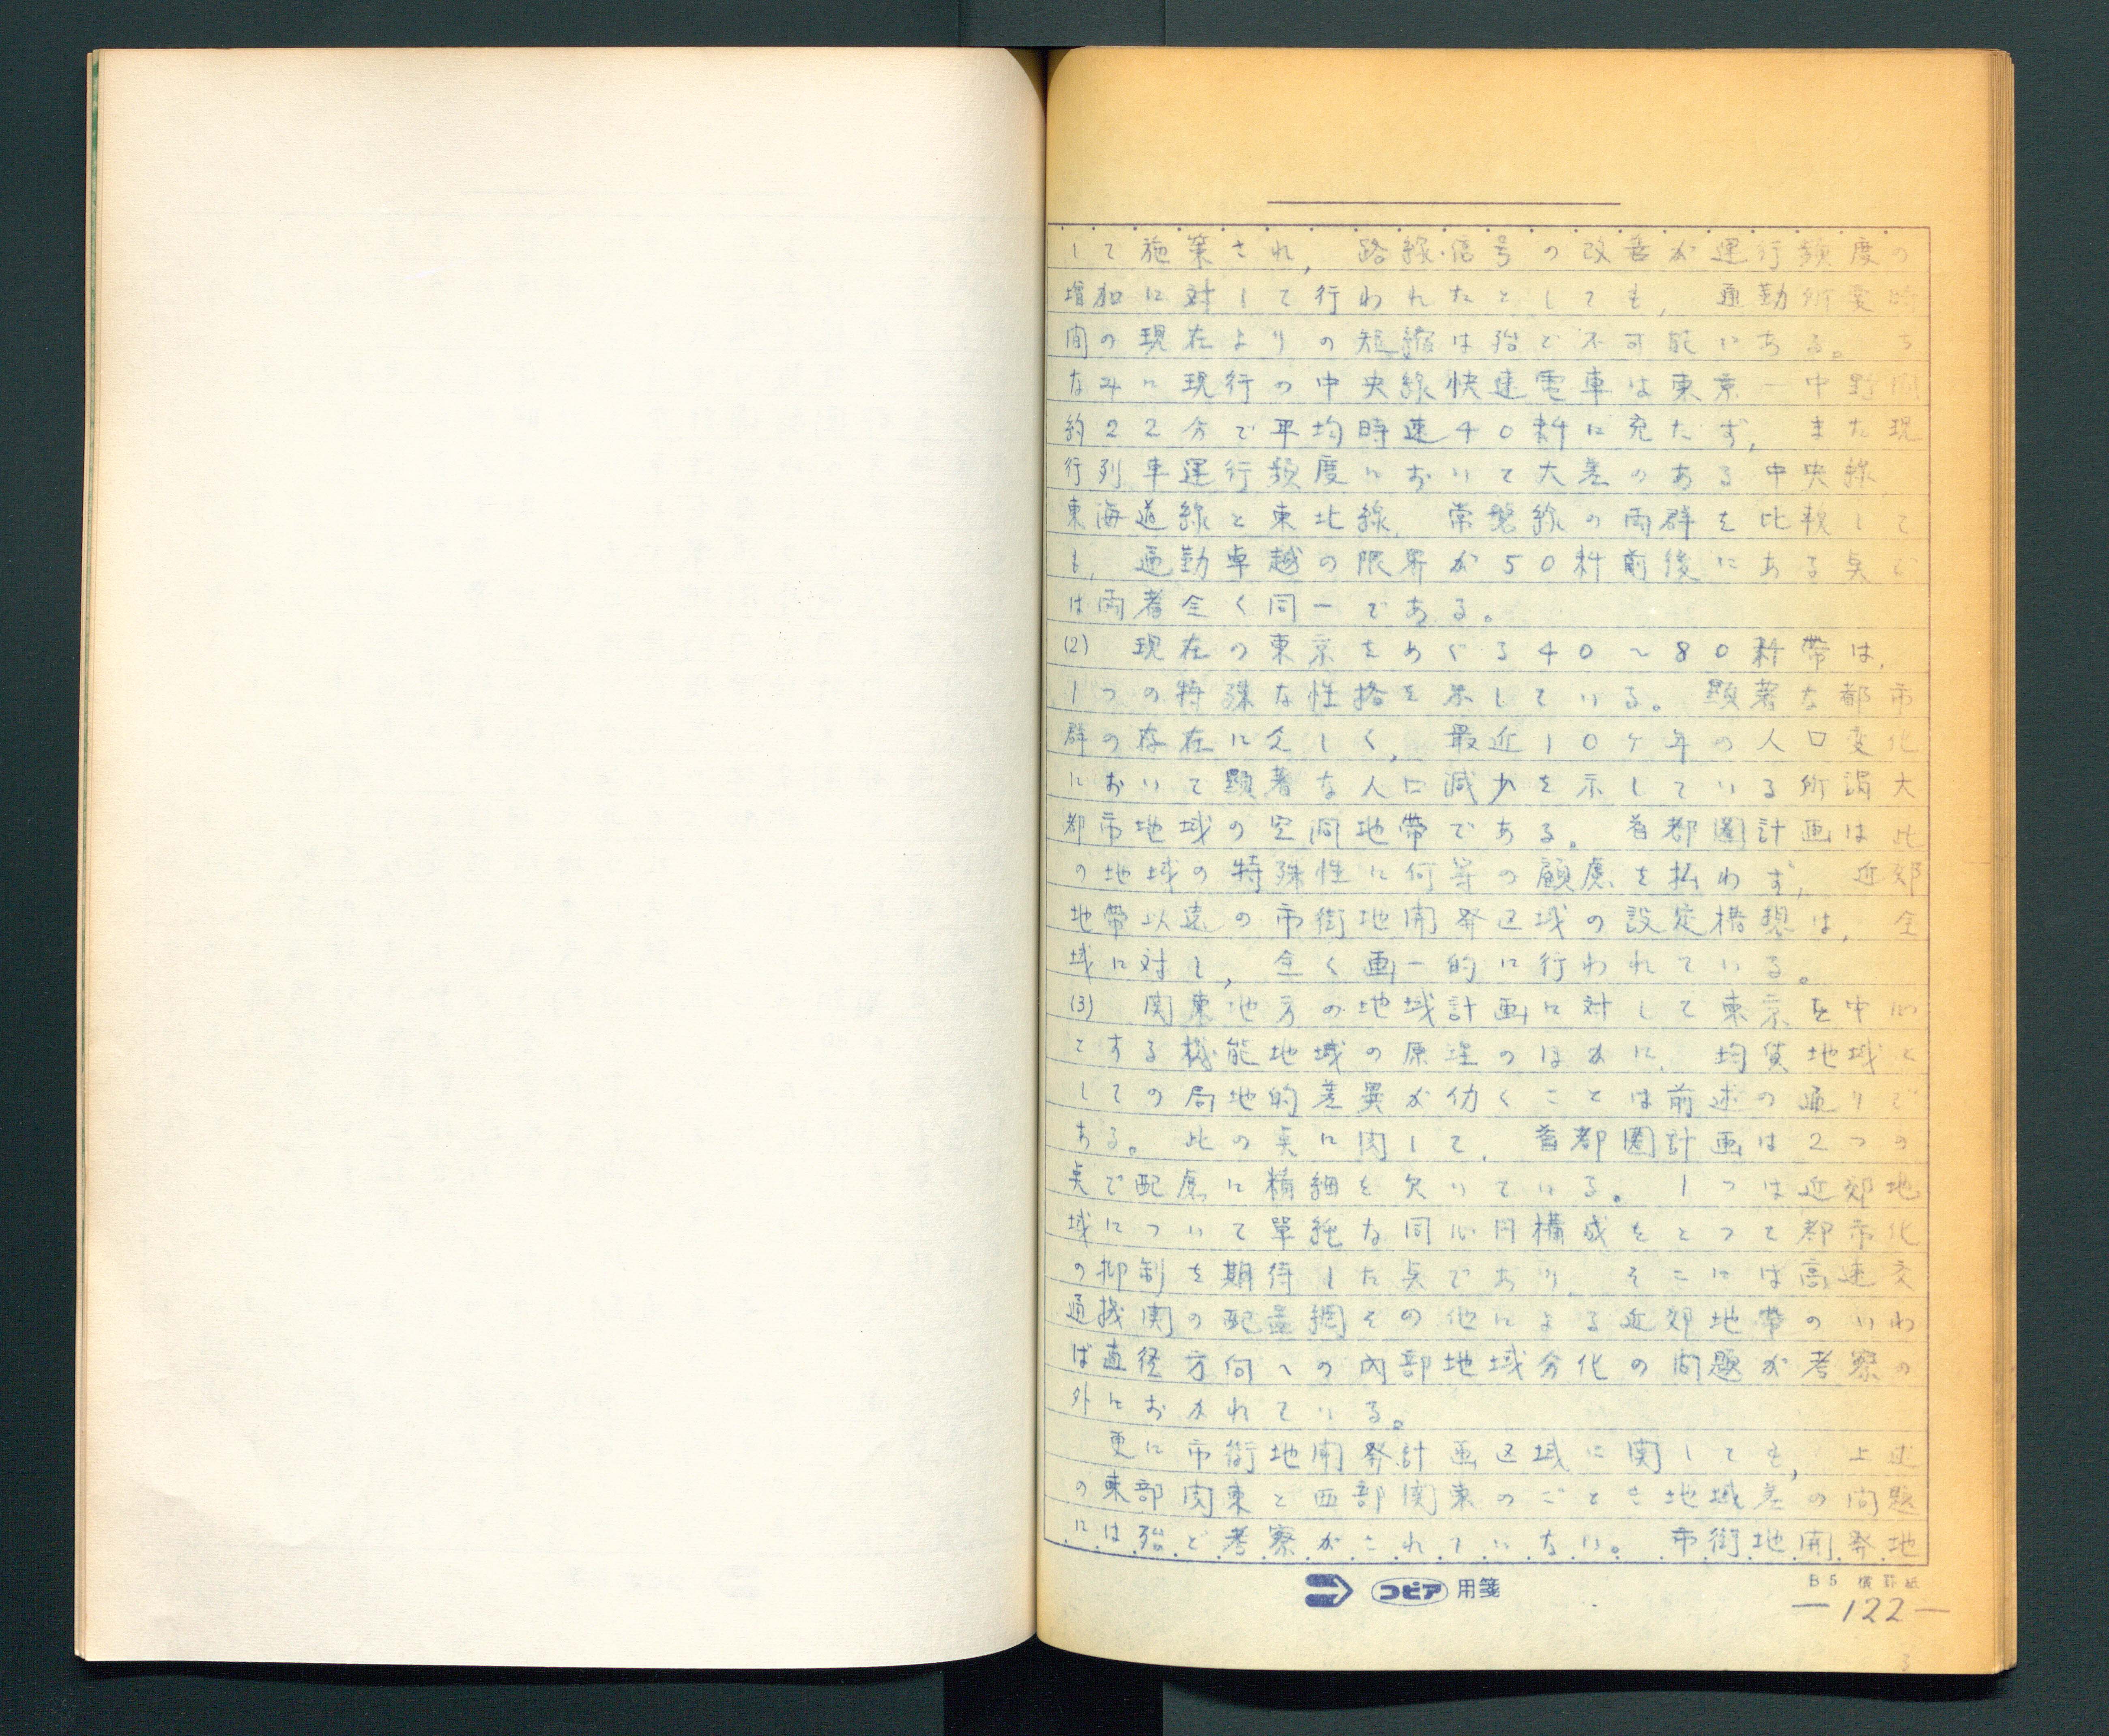 して施策され,路線・信号の改善が運行頻度の
増加に対して行われたとしても,通勤所要時
間の現在よりの短縮は殆ど不可能である。ち
なみに現行の中央線快速電車は東京ー中野間
約22分で平均時速40粁に充たず,また現
行列車運行頻度において大差のある中央線,
東海道線と東北線,常磐線の両群を比較して
も,通勤卓越の限界が50粁前後にある点で
は両者全く同一である。
(2) 現在の東京をめぐる40〜80粁帯は,
1つの特殊な性格を示している。顕著な都市
群の存在に乏しく,最近10ケ年の人口変化
において顕著な人口減少を示している所謂大
都市地域の空洞地帯である。首都圏計画は此
の地域の特殊性に何等の顧慮を払わず,近郊
地帯以遠の市街地開発区域の設定構想は,全
域に対し,全く画一的に行われている。
(3) 関東地方の地域計画に対して東京を中心
とする機能地域の原理のほかに,均質地域と
しての局地的差異が仂くことは前述の通りで
ある。此の点に関して,首都圏計画は2つの
点で配慮に精細を欠いている。1つは近郊地
域について單純な同心円構成をとつて都市化
の抑制を期待した点であり,そこには高速交
通機関の配置網その他による近郊地帯のいわ
ば直径方向への内部地域分化の問題が考察の
外におかれている。
更に市街地開発計画区域に関しても,上述
の東部関東と西部関東のごとき地域差の問題
には殆ど考察がされていない。市街地開発地
コピア用箋
B5 横罫紙
—122—